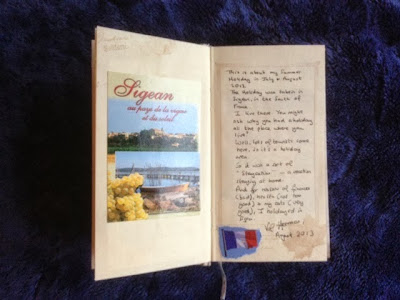 Sigean
au pays de la vigne
et du soleil
This is about my Summer
Holiday in July & August
2013
The Holiday was taken in
Sigean, in the South of
France
I live there. You might
ask why you had a holiday
at the place where you
live?
Well, lots of tourists come
here, so it's a holiday
area.
So I did a sort of
"Staycation" - a vacation
staying at home.
And for reasons of finance
(bad), health (not too
good) & my cats (very
good), I holidayed in
Sigean.
August 2013